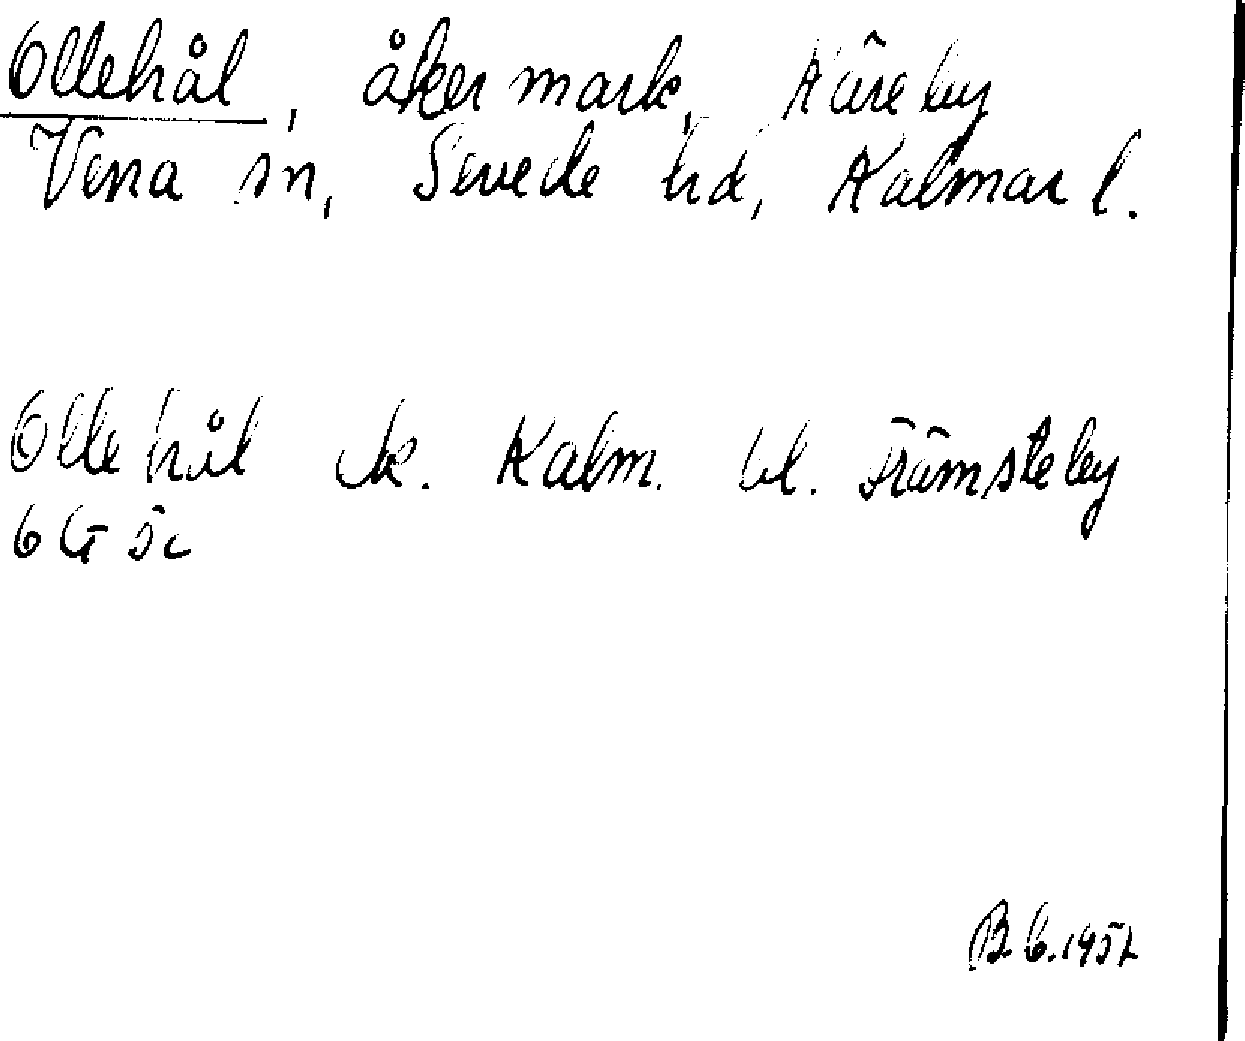 Ollehål, åkermark, Käreby
Vena sn, Sevede hd, Kalmar l.
Ollehål ek. Kalm. bl. Främsteby
6 G 5c
B 6.1957